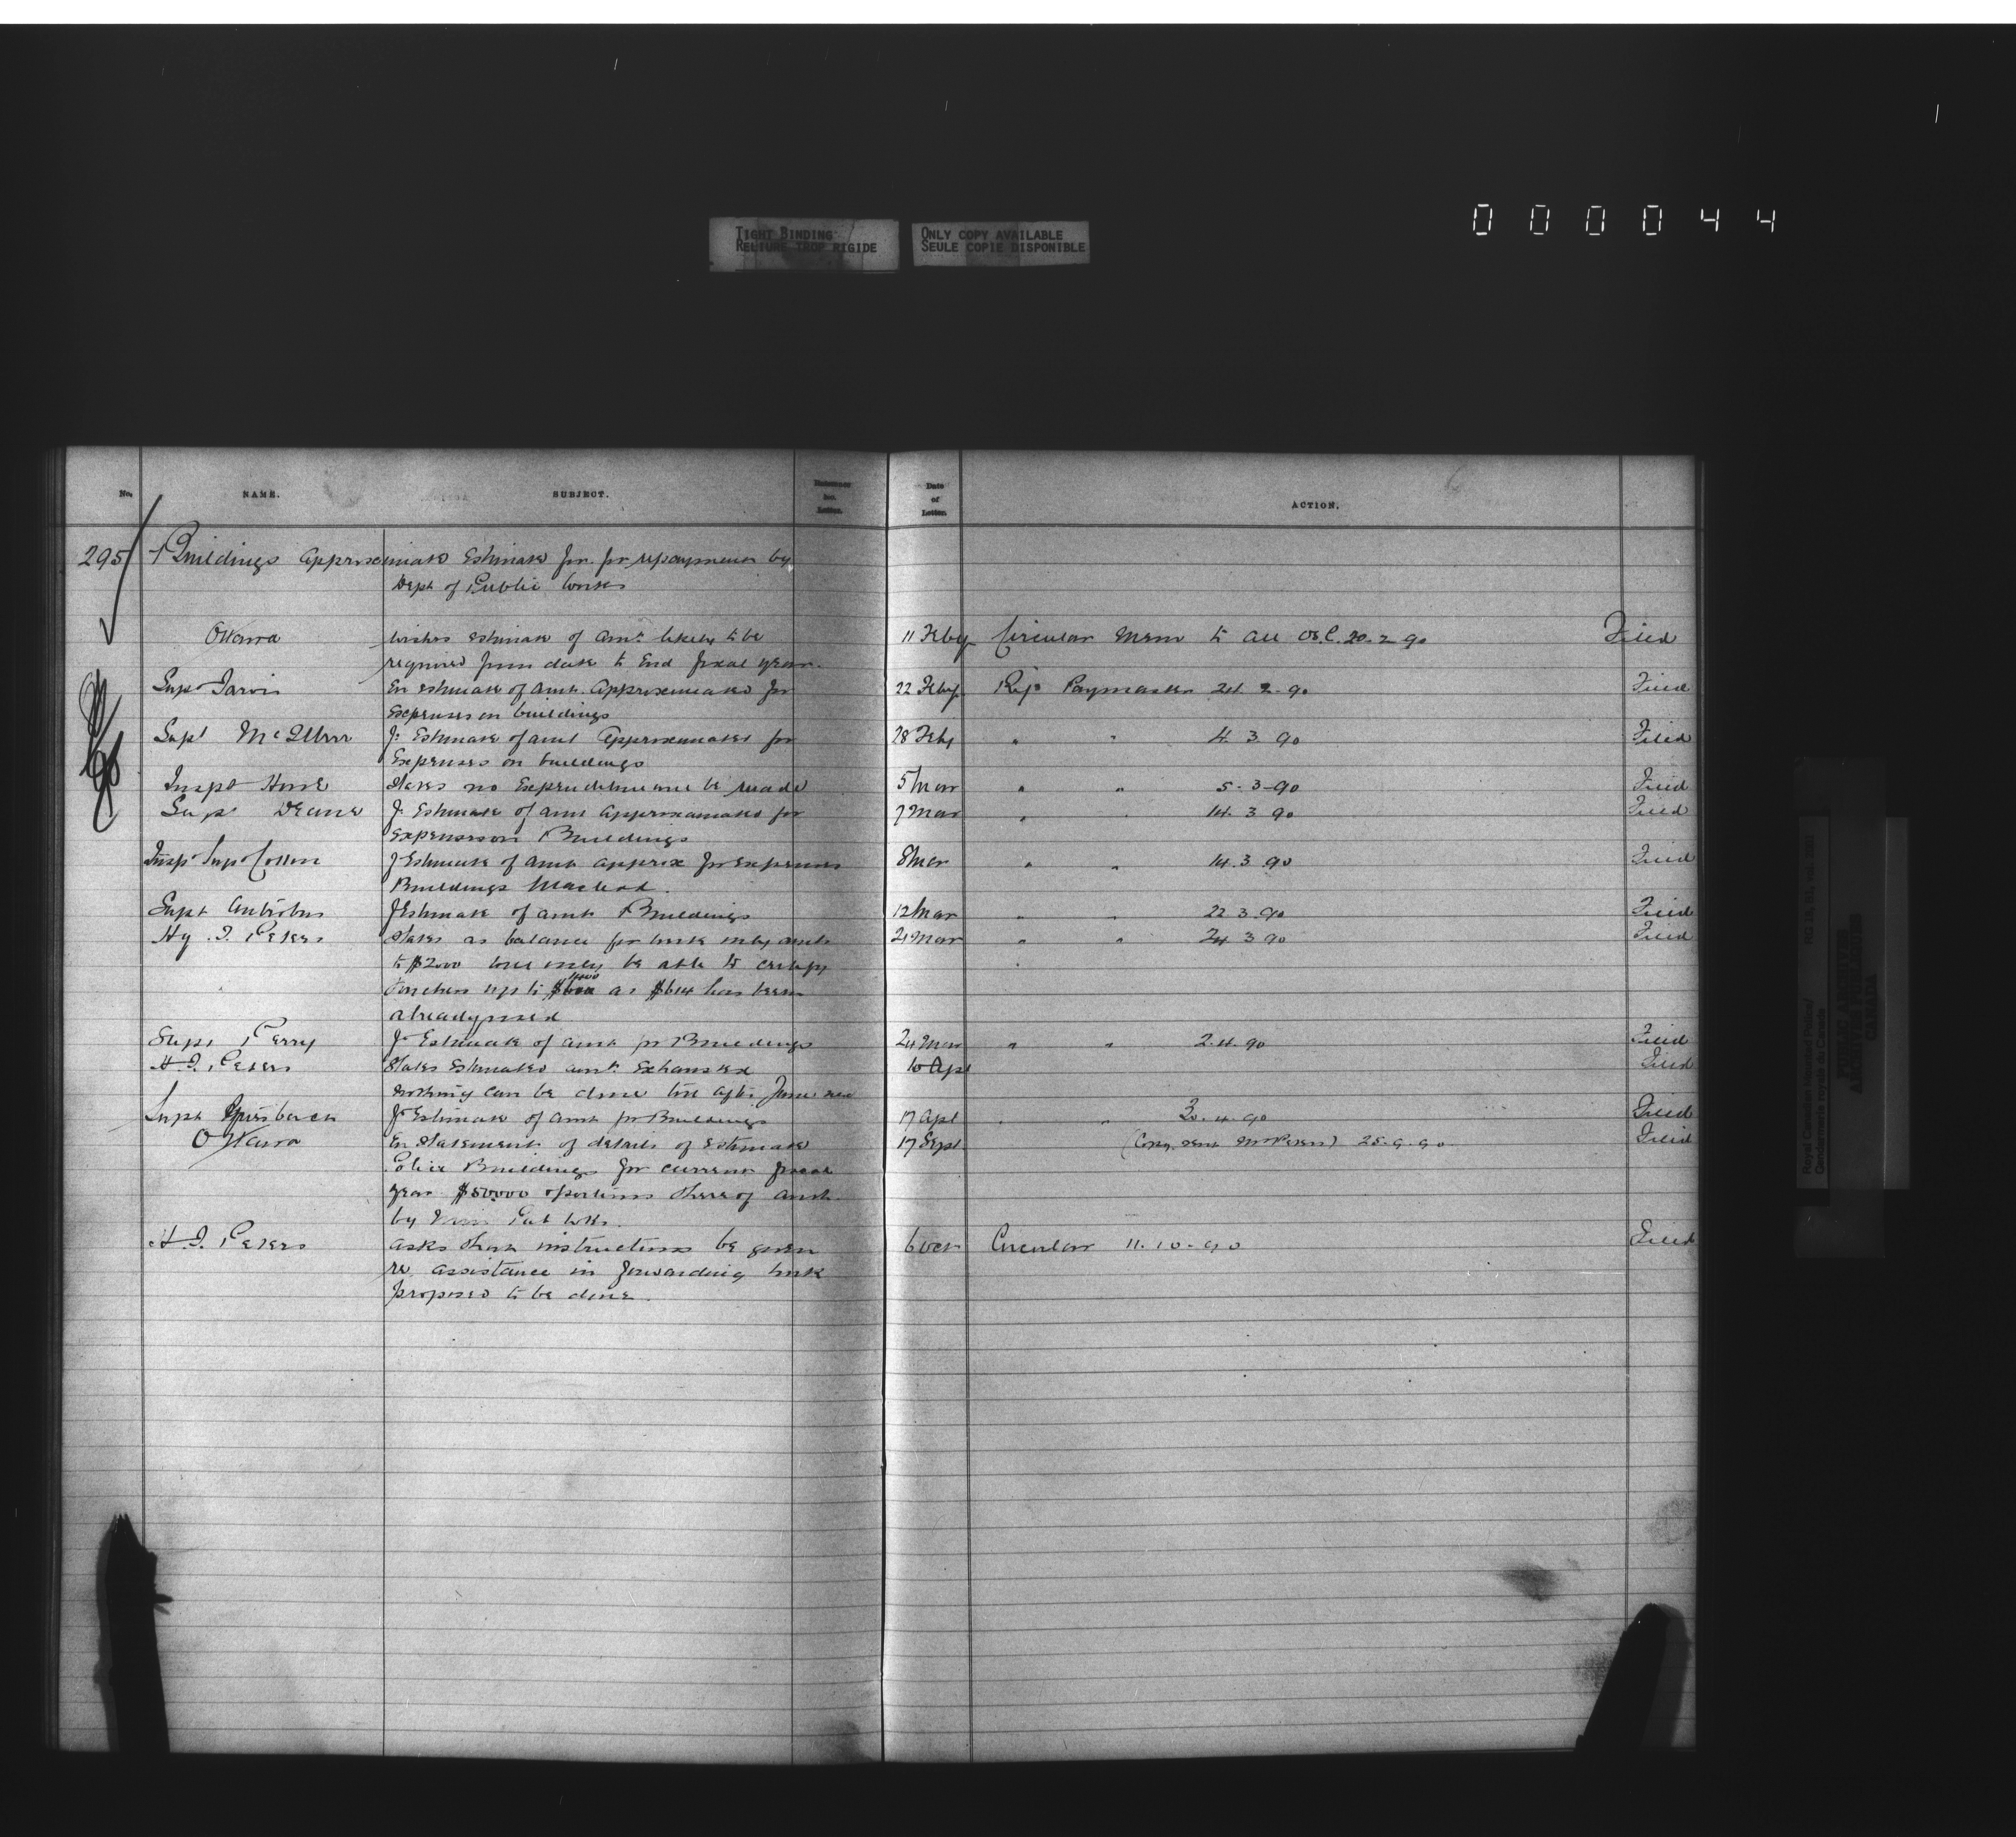 000044
TIGHT BINDING
RELIURE TROP RIGIDE
ONLY COPY AVAILABLE
SEULE COPIE DISPONIBLE
No. NAME. SUBJECT. Letter. Date of Letter. ACTION.
295 Buildings approximate Estimate for for repayment by
Dept of Public Works
Ottawa wishes estimate of amt. likely to be 11 Feby Circular Mem to all Os.C. 20-2-90 Filed
required from date to End fiscal year.
Sup Jarvis En estimate of amt. Approximated for 22 Feby Rep Paymaster 24 2-90 Filed
expenses on buildings
Supt McIllree Estimate of amt Approximated for 28 Feby " " 4. 3 90 Filed
Expenses on buildings
Inspt Howe States no Expenditure made 5 Mar " " 5-3-90 Filed
Supt Deane Estimate of amt approximated for 7 Mar " " 14. 3 90 Filed
Expenses on Buildings
Insp Sup Cotton Estimate of amt approx for expenses 8 Mar " " 14.3 90 Filed
Buildings Macleod.
Supt Antrobus Estimate of amt Buildings 12 Mar " " 22 3 90 Filed
Hy. J. Peters States as balance for work only amts 21 Mar " " 24 3 90 Filed
to $2000 will only be able to certify
vouchers up to as $614 has been
already used
Supt Perry Estimate of amt for Buildings 24 Mar " " 2.4.90 Filed
H.J. Peters States Estimated amt. Exhausted 10 Apl Filed
nothing can be done till after June
Supt Griesbach Estimate of amt for Buildings 17 Apl " " 3.4.90 Filed
Ottawa En Statement of details of Estimate 17 Sept (Copy sent Mr Peters) 25.9.90 Filed
Police Buildings for current fiscal
year $50000 thereof
by Pub Wks.
H.J. Peters asks that instructions be given 6 Oct Circular 11.10-90 Filed
re assistance in forwarding work
proposed to be done.
Royal Canadian Mounted Police/
Gendarmerie royale du Canada
PUBLIC ARCHIVES
ARCHIVES PUBLIQUES
CANADA